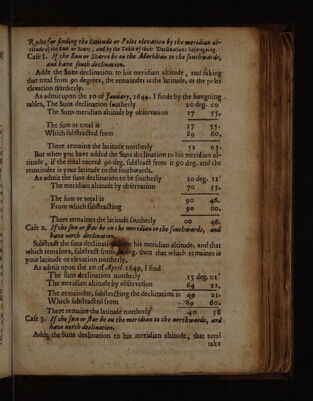 Rules for finding the Latitude or Poles elevation by the meridian al-
titude of the Sun or Stars, and by the Tables of their Declinations beforegoing.
Case 1. If the Sun or Starre be on the Meridian to the southwards,
and have south declination.
Adde the Suns declination to his meridian altitude, and taking
that total from 90 degrees, the remainder is the latitude, or the poles
elevation northerly.
As admit upon the 10 of January, 1649. I finde by the foregoing
tables, The Suns declination southerly 20 deg. 00
The Suns meridian altitude by observation 17 55.
The sum or total is 37 55.
Which substracted from 89 60.
There remains the latitude northerly 52 05.
But when you have added the Suns declination to his meridian al-
titude, if the total exceed 90 deg. substract from it 90 deg. and the
remainder is your latitude to the southwards.
As admit the suns declination to be southerly 20 deg. 11'
The meridian altitude by observation 70 35.
The sum or total is 90 46.
From which substracting 90 00.
There remaines the latitude southerly 00 46.
Case 2. If the sun or star be on the meridian to the southwards, and
have north declination.
Substract the suns declination his meridian altitude, and that
which remaines, substract from deg. then that which remaines is
your latitude or elevation northerly.
As admit upon the 20 of April 1649, I find
The suns declination northerly 15 deg. 01'
The meridian altitude by observation 64 22,
The remainder, substracting the declination is 49 21.
Which substracted from 89 60.
There remaines the latitude northerly 40 38
Case 3. If the sun or star be on the meridian to the northwards, and
have north declination.
Adde the Suns declination to his meridian altitude, that total
take